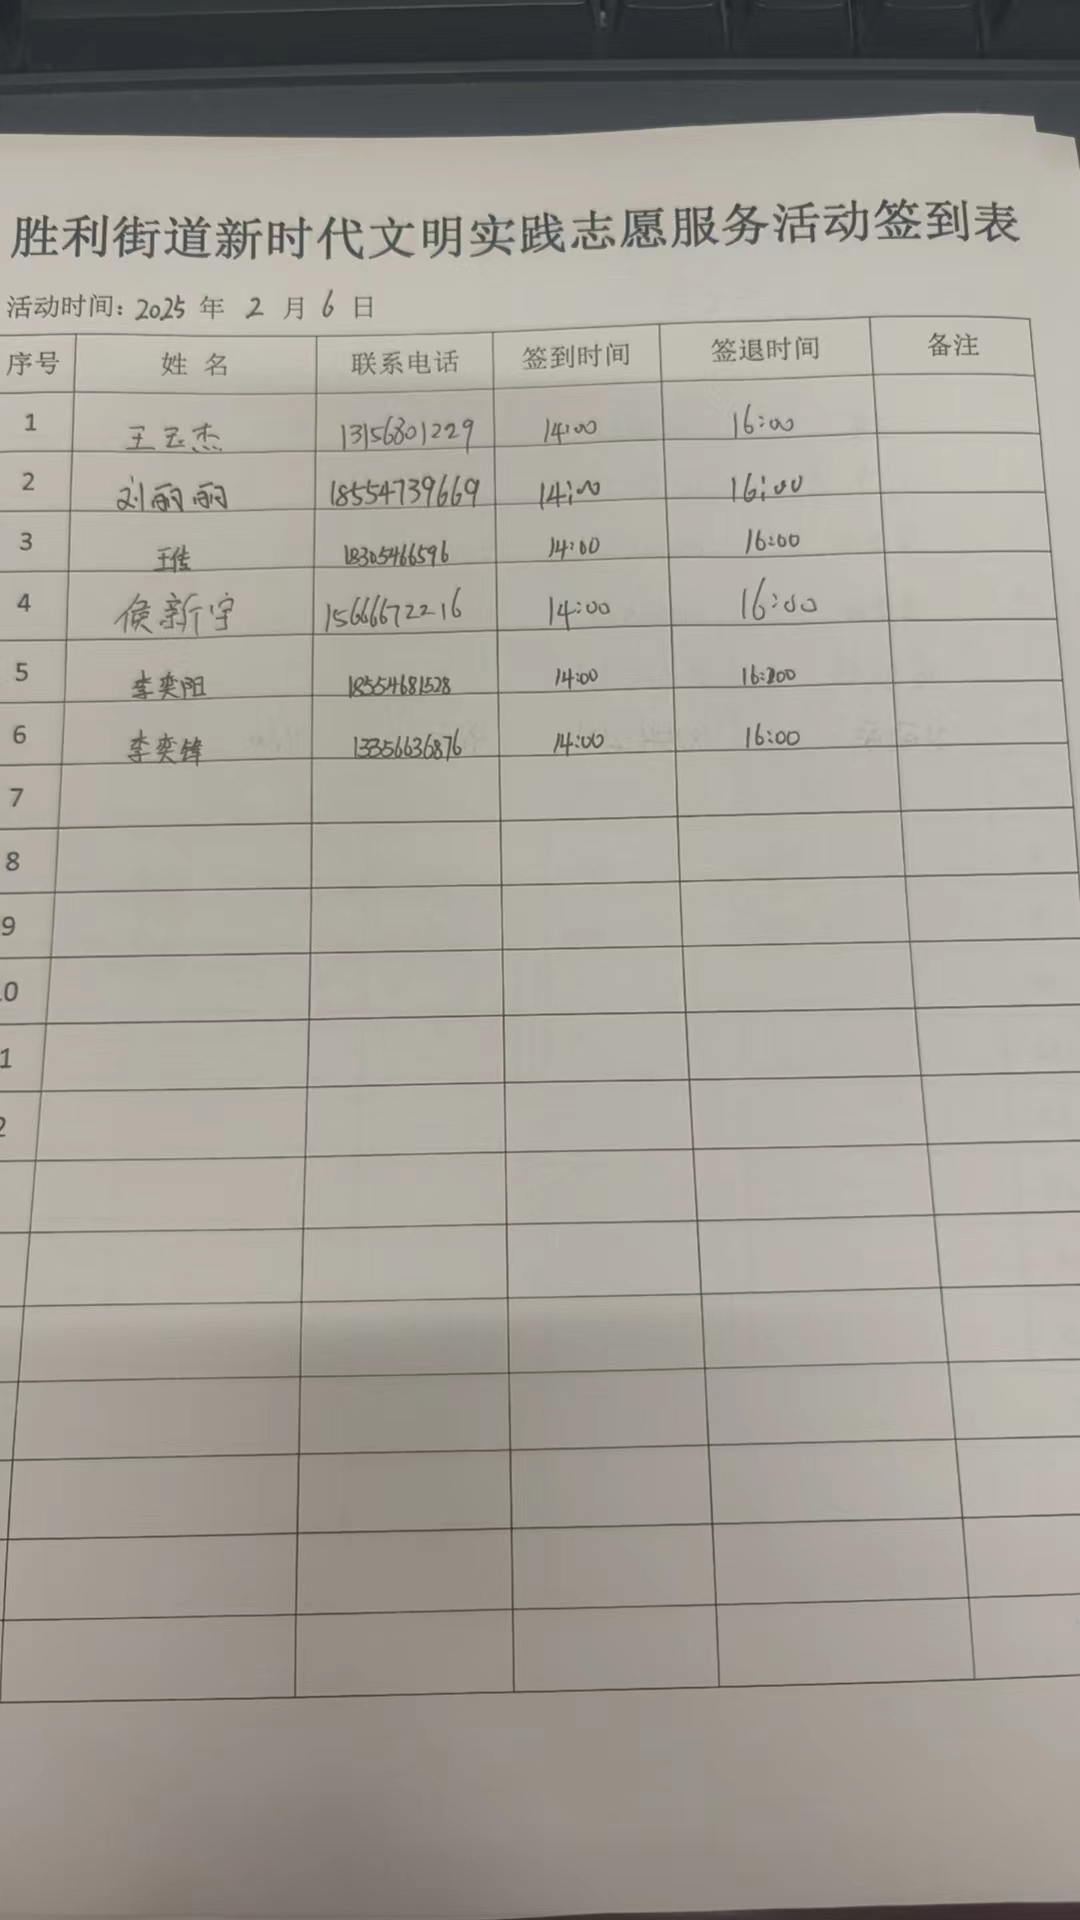 胜利街道新时代文明实践志愿服务活动签到表
活动时间：2025 年 2 月 6 日
序号 姓 名 联系电话 签到时间 签退时间 备注
1 王玉杰 13156801229 14:00 16:00
2 刘丽丽 18554739669 14:00 16:00
3 王佳 18305466596 14:00 16:00
4 侯新宇 15666672216 14:00 16:00
5 李奕阳 18554681528 14:00 16:00
6 李奕锋 13356636876 14:00 16:00
7
8
9
0
1
2